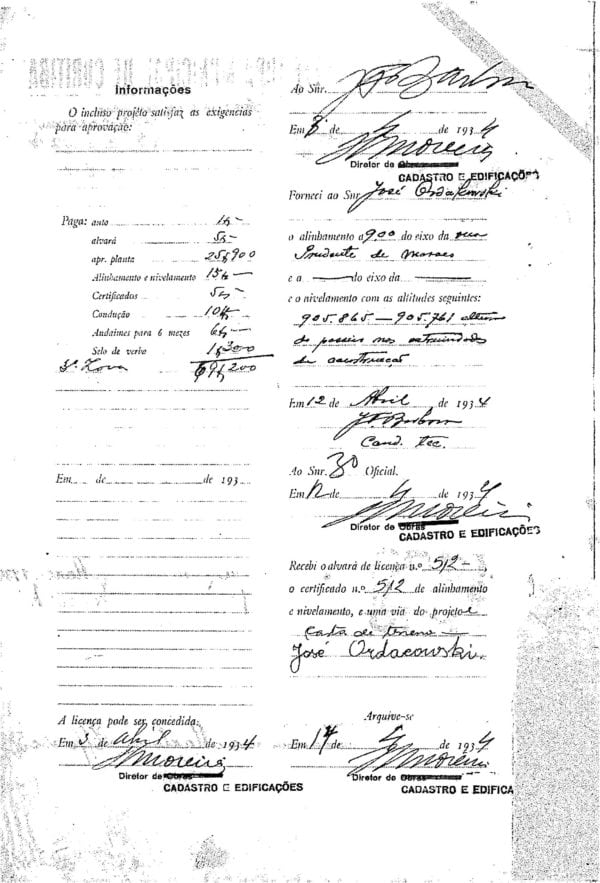 Informações
O incluso projéto satisfaz as exigencias
para aprovação:
Paga: auto 1$-
alvará 5$-
apr. planta 25$900
Alinhamento e nivelamento 15$-
Certificados 5$-
Condução 10$
Andaimes para 6 mezes 6$-
Selo de verba 1$300
3ª Zona 69$200
Em de de 193
A licença pode ser concedida:
Em 3 de abril de 1934
Moreira
Diretor de Obras
CADASTRO E EDIFICAÇÕES
Ao Snr.
Em 3 de 4 de 1934
Moreira
Diretor de Obras
CADASTRO E EDIFICAÇÕES
Forneci ao Snr. José Ordakowski
o alinhamento a 9,00 do eixo da rua
Prudente de Moraes
e a do eixo da
e o nivelamento com as altitudes seguintes:
905.865 — 905.761 altura
do passeio nas extremidades
da construcção
Em 12 de Abril de 1934
Cond. Tec.
Ao Snr. 3º Oficial.
Em 12 de 4 de 1934
Moreira
Diretor de Obras
CADASTRO E EDIFICAÇÕES
Recebi o alvará de licença n.º 512
o certificado n.º 512 de alinhamento
e nivelamento, e uma via do projeto e
Carta de terreno
José Ordacowski.
Arquive-se
Em 14 de 4 de 1934
Moreira
Diretor de Obras
CADASTRO E EDIFICA